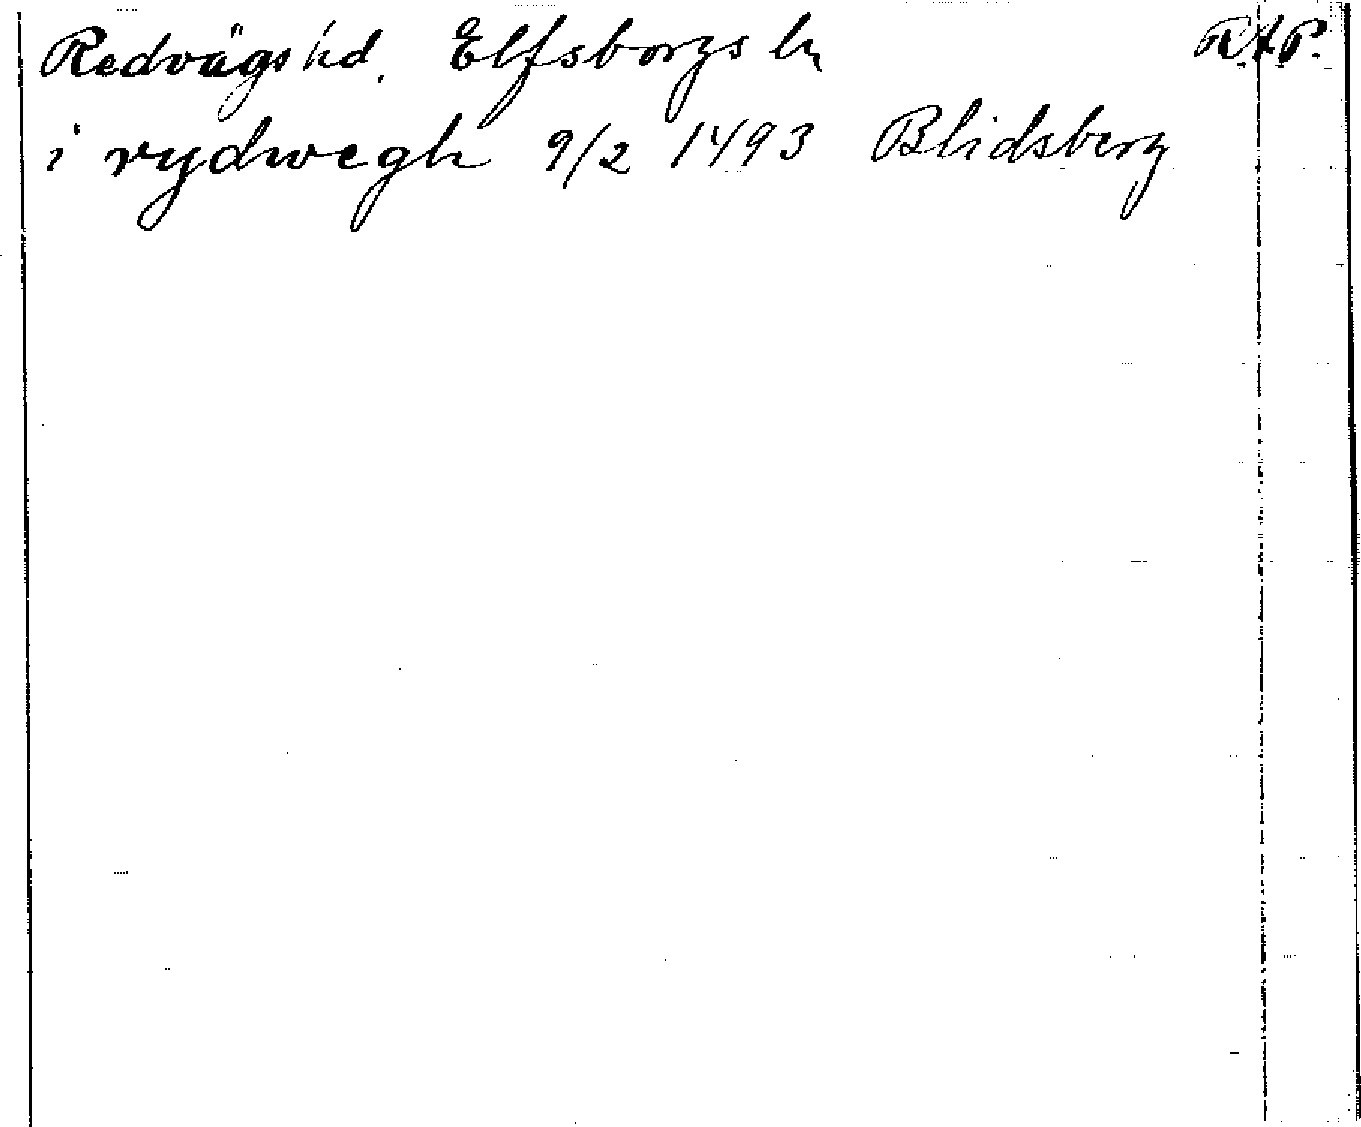 Redvägs hd. Elfsborgs ln R.A.P.
i rydwegh 9/2 1493 Blidsberg